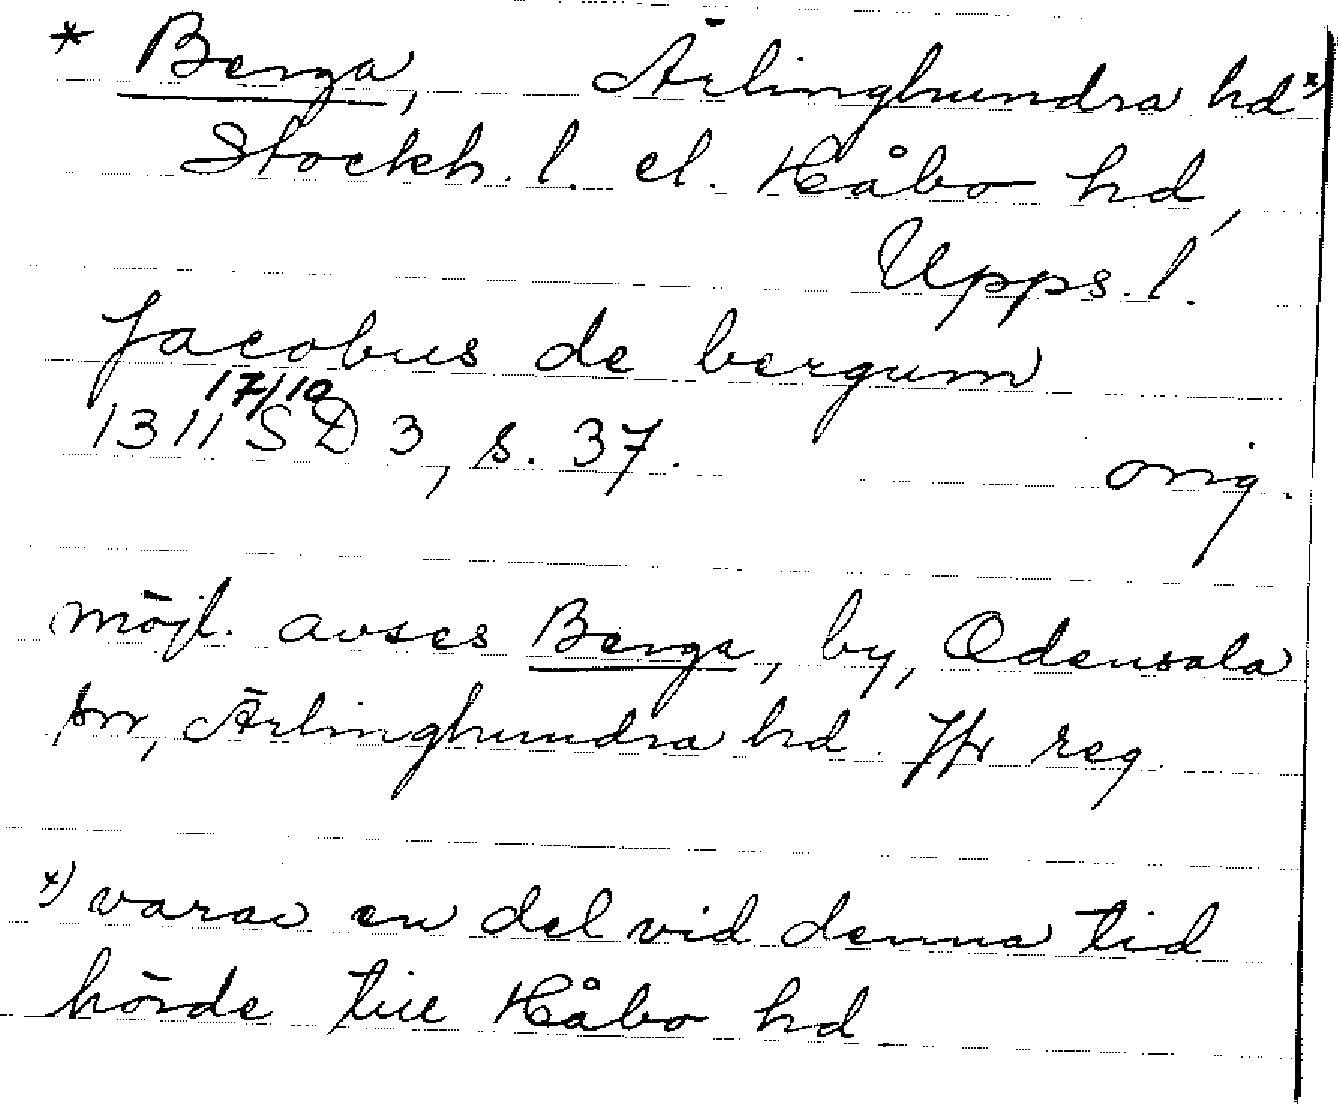 * Berga, Ärlinghundra hd x)
Stockh. l. el. Håbo hd,
Upps. l.
Jacobus de bergum
17/10
1311 SD 3, s. 37. orig.
möjl. avses Berga, by, Odensala
sn, Ärlinghundra hd. Jfr reg.
x) varav en del vid denna tid
hörde till Håbo hd